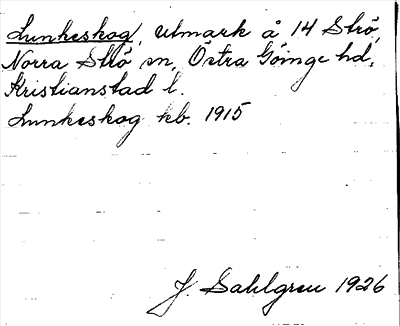 Lunkeskog, utmark å 14 Strö,
Norra Strö sn, Östra Göinge hd,
Kristianstad l.
Lunkeskog kb. 1915
J. Sahlgren 1926